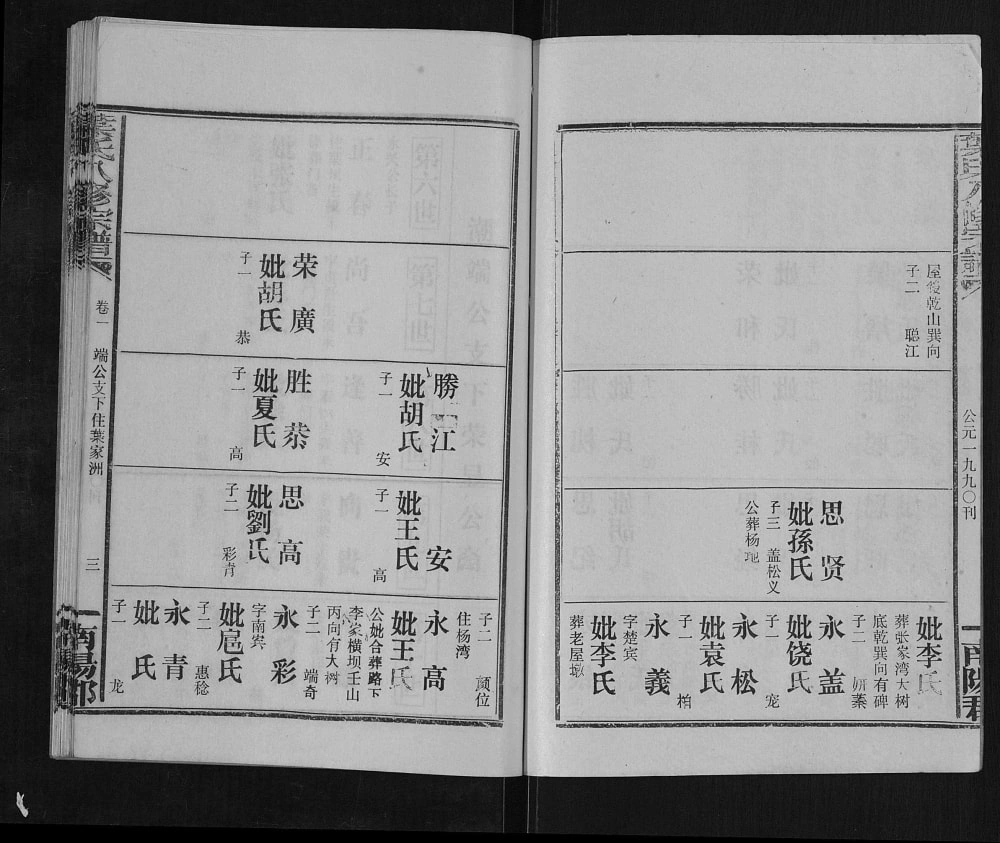 公元一九九〇刊
屋後乾山巽向
子二 聪江
思贤
妣孫氏
子三 盖松义
公葬杨地
妣李氏
葬张家湾大树
底乾巽向有碑
子二
永盖
妣饶氏
子一 宠
永松
妣袁氏
子一 柏
永義
字楚宾
妣李氏
葬老屋墩
荣廣
妣胡氏
子一 恭
勝江
妣胡氏
子一 安
胜恭
妣夏氏
子一 高
安
妣王氏
子一 高
思高
妣劉氏
子二 彩青
子二 顾位
住杨湾
永高
妣王氏
公妣合葬路下
李家横坝壬山
丙向有大树
子二 端奇
永彩
字南宾
妣扈氏
子二 惠稔
永青
妣氏
子一 龙
葉氏八修宗譜
卷一
端公支下住葉家洲
三
南陽郡